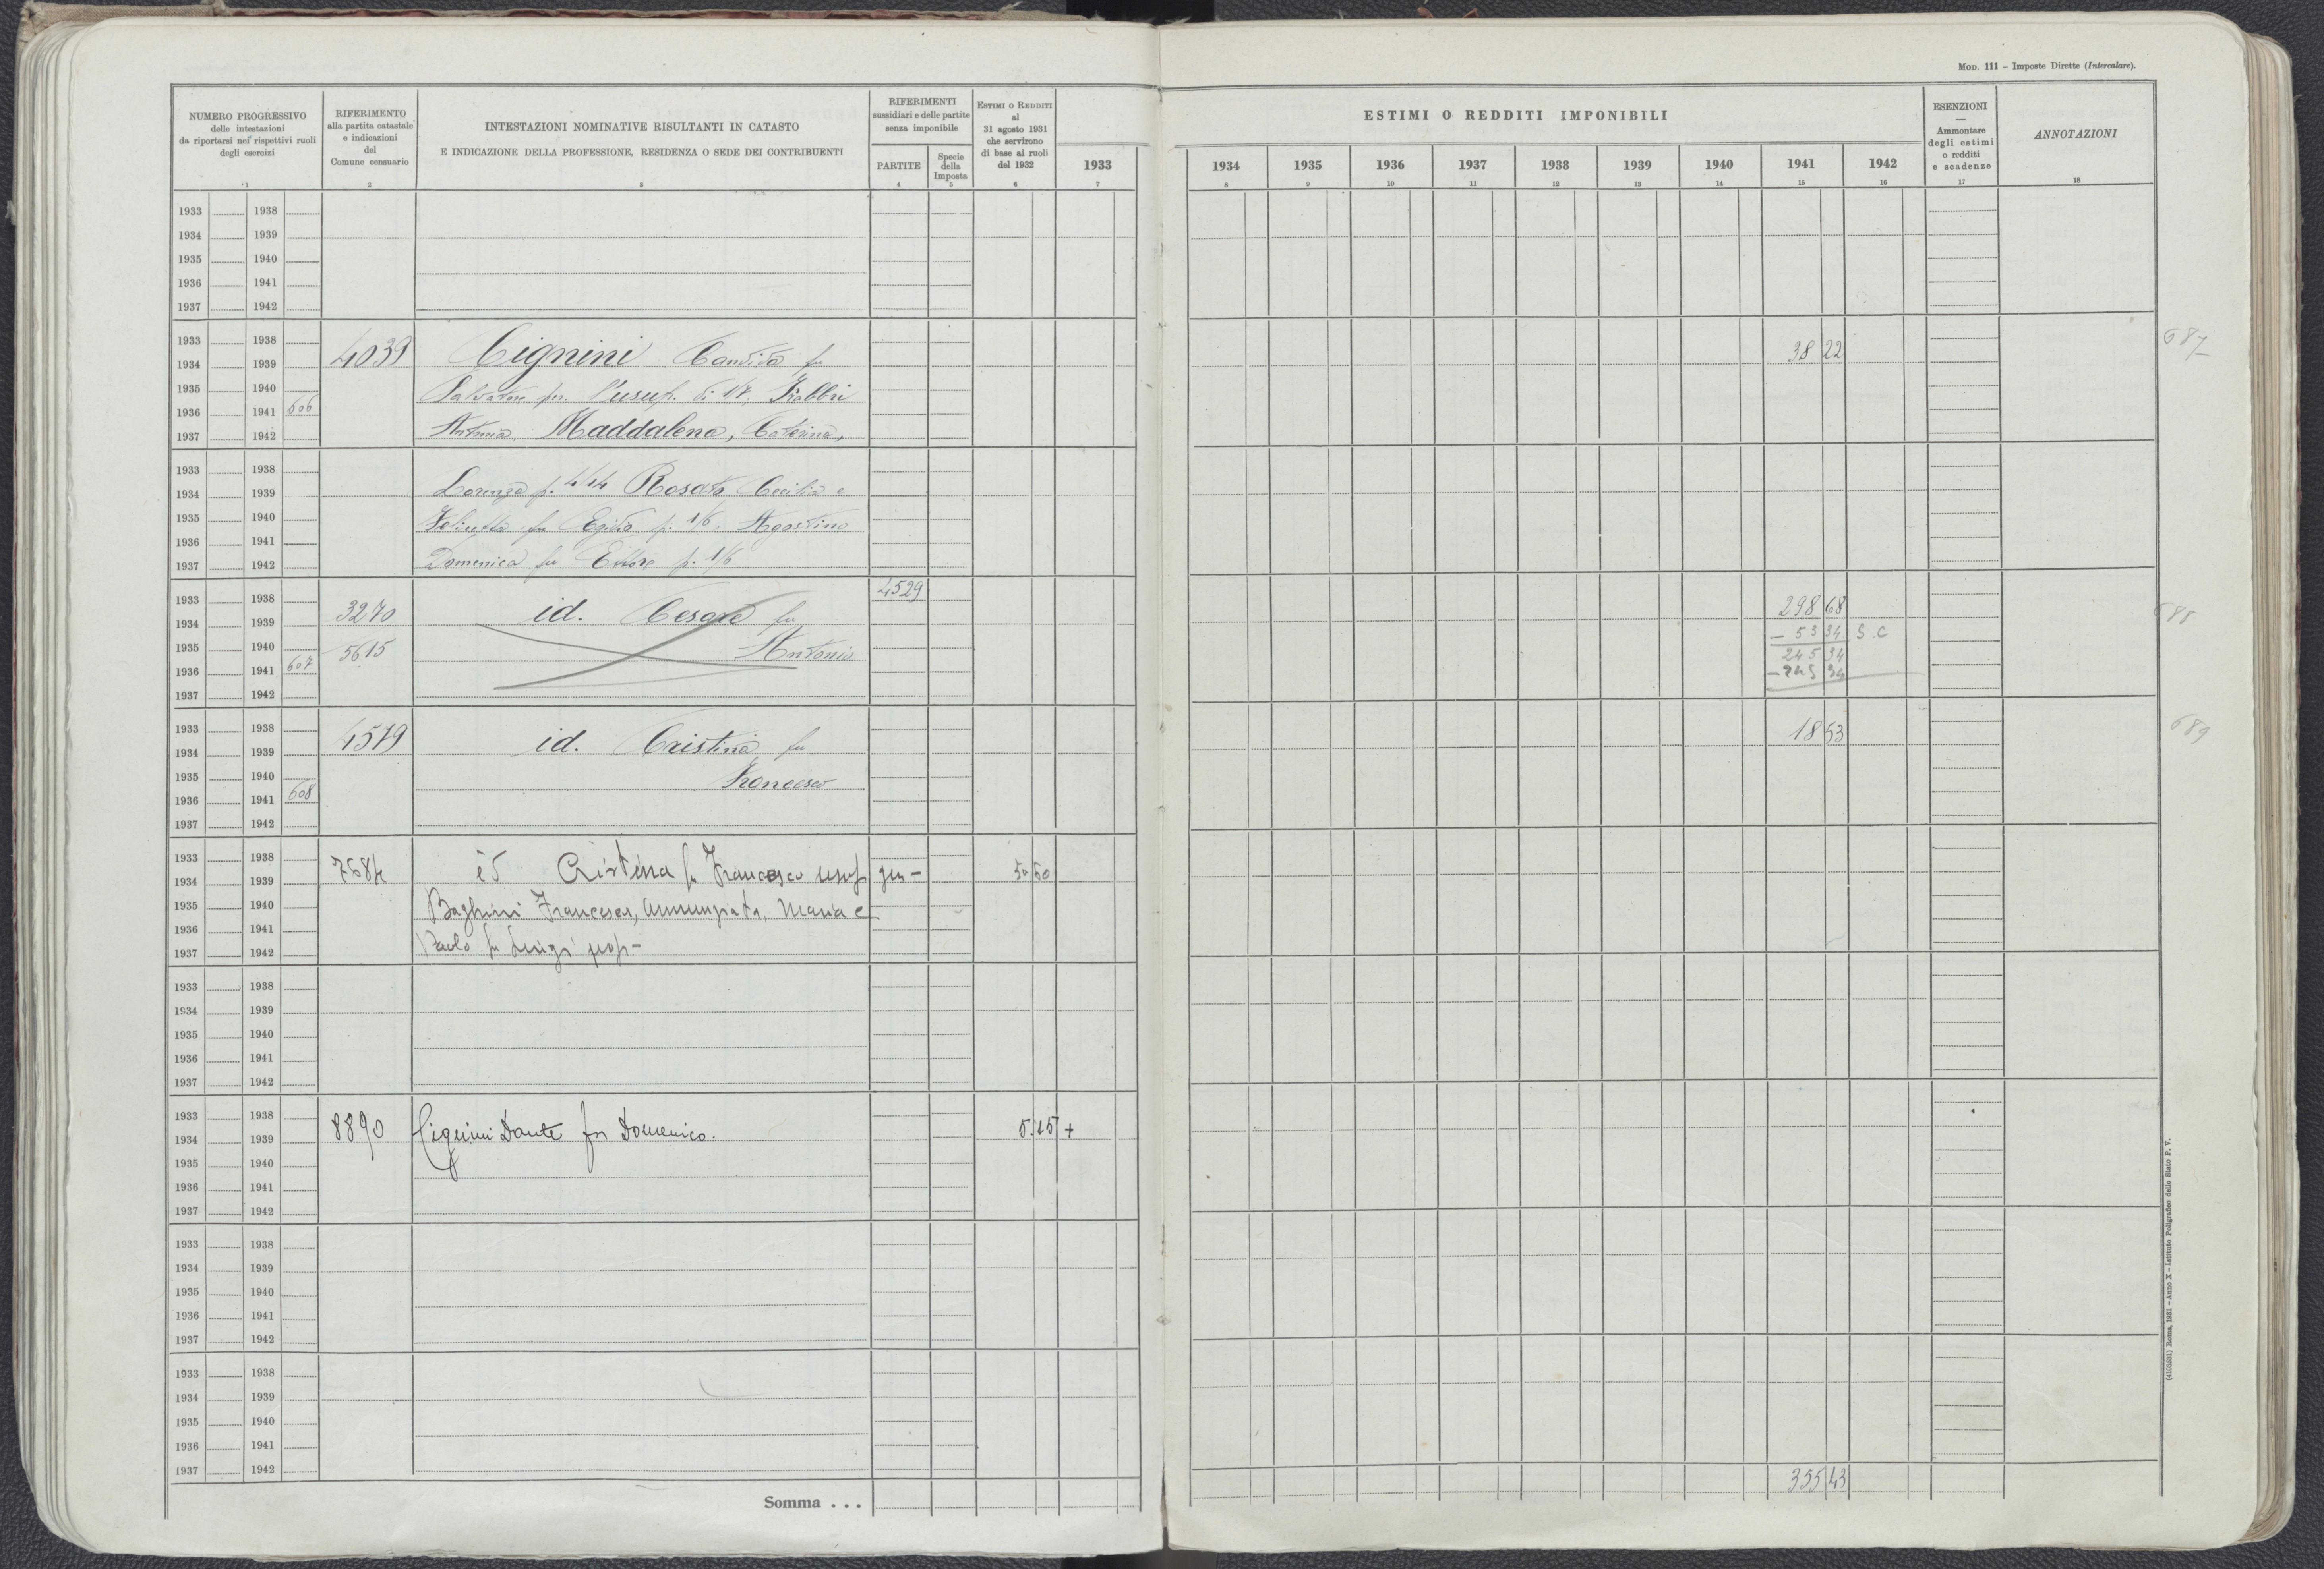 Mod. 111 – Imposte Dirette (Intercalare).
NUMERO PROGRESSIVO
delle intestazioni
da riportarsi nei rispettivi ruoli
degli esercizi
1
RIFERIMENTO
alla partita catastale
e indicazioni
del
Comune censuario
2
INTESTAZIONI NOMINATIVE RISULTANTI IN CATASTO
E INDICAZIONE DELLA PROFESSIONE, RESIDENZA O SEDE DEI CONTRIBUENTI
3
RIFERIMENTI
sussidiari e delle partite
senza imponibile
PARTITE
4
Specie
della
Imposta
5
Estimi o Redditi
al
31 agosto 1931
che servirono
di base ai ruoli
del 1932
6
1933
7
ESTIMI O REDDITI IMPONIBILI
1934 1935 1936 1937 1938 1939 1940 1941 1942
8 9 10 11 12 13 14 15 16
ESENZIONI
—
Ammontare
degli estimi
o redditi
e scadenze
17
ANNOTAZIONI
18
1933 1938
1934 1939
1935 1940
1936 1941
1937 1942
1933 1938
1934 1939 4039 Cignini Candida fu 38 22 687
1935 1940 Salvatore per l'usuf. di 1/7, Fabbri
1936 1941 606
1937 1942 Antonia, Maddalena, Caterina,
1933 1938
1934 1939 Lorenza p. 4/14 Rosato Cecilia e
1935 1940 Felicetta fu Egidio p. 1/6, Agostino
1936 1941
1937 1942 Domenica fu Ettore p. 1/6
1933 1938 3270 id. Cesare fu 4529 298 68 688
1934 1939 – 53 34 S. C
1935 1940 5615 Antonio 245 34
1936 1941 607 – 245 34
1937 1942
1933 1938 4579 id. Cristina fu 18 53 689
1934 1939
1935 1940 Francesco
1936 1941 608
1937 1942
1933 1938
1934 1939 7684 id Cristina fu Francesco usuf gen – 50 60
1935 1940 Baghini Francesca, Annunziata, Maria e
1936 1941
1937 1942 Paolo fu Luigi prop –
1933 1938
1934 1939
1935 1940
1936 1941
1937 1942
1933 1938
1934 1939 8890 Cignini Dante fu Domenico. 5.15 +
1935 1940
1936 1941
1937 1942
1933 1938
1934 1939
1935 1940
1936 1941
1937 1942
1933 1938
1934 1939
1935 1940
1936 1941
1937 1942
Somma . . . 355 43
Roma, 1931 – Anno X – Istituto Poligrafico dello Stato P. V.